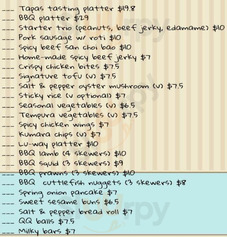 ___ Tapas tasting platter $19.8
___ BBQ platter $29
___ Starter trio (peanuts, beef jerky, edamame) $10
___ Pork sausage w/ roti $10
___ Spicy beef san choi bao $10
___ Home-made spicy beef jerky $7
___ Crispy chicken bites $7.5
___ Signature tofu (v) $7.5
___ Salt & pepper oyster mushroom (v) $7.5
___ Sticky rice (v optional) $7
___ Seasonal vegetables (v) $6.5
___ Tempura vegetables (v) $7.5
___ Spicy chicken wings $7
___ Kumara chips (v) $7
___ Lu-way platter $10
___ BBQ lamb (4 skewers) $10
___ BBQ squid (3 skewers) $9
___ BBQ prawns (3 skewers) $10
___ BBQ cuttlefish nuggets (3 skewers) $8
___ Spring onion pancake $7
___ Sweet sesame buns $6.5
___ Salt & pepper bread roll $7
___ QQ balls $7.5
___ Milky bars $7